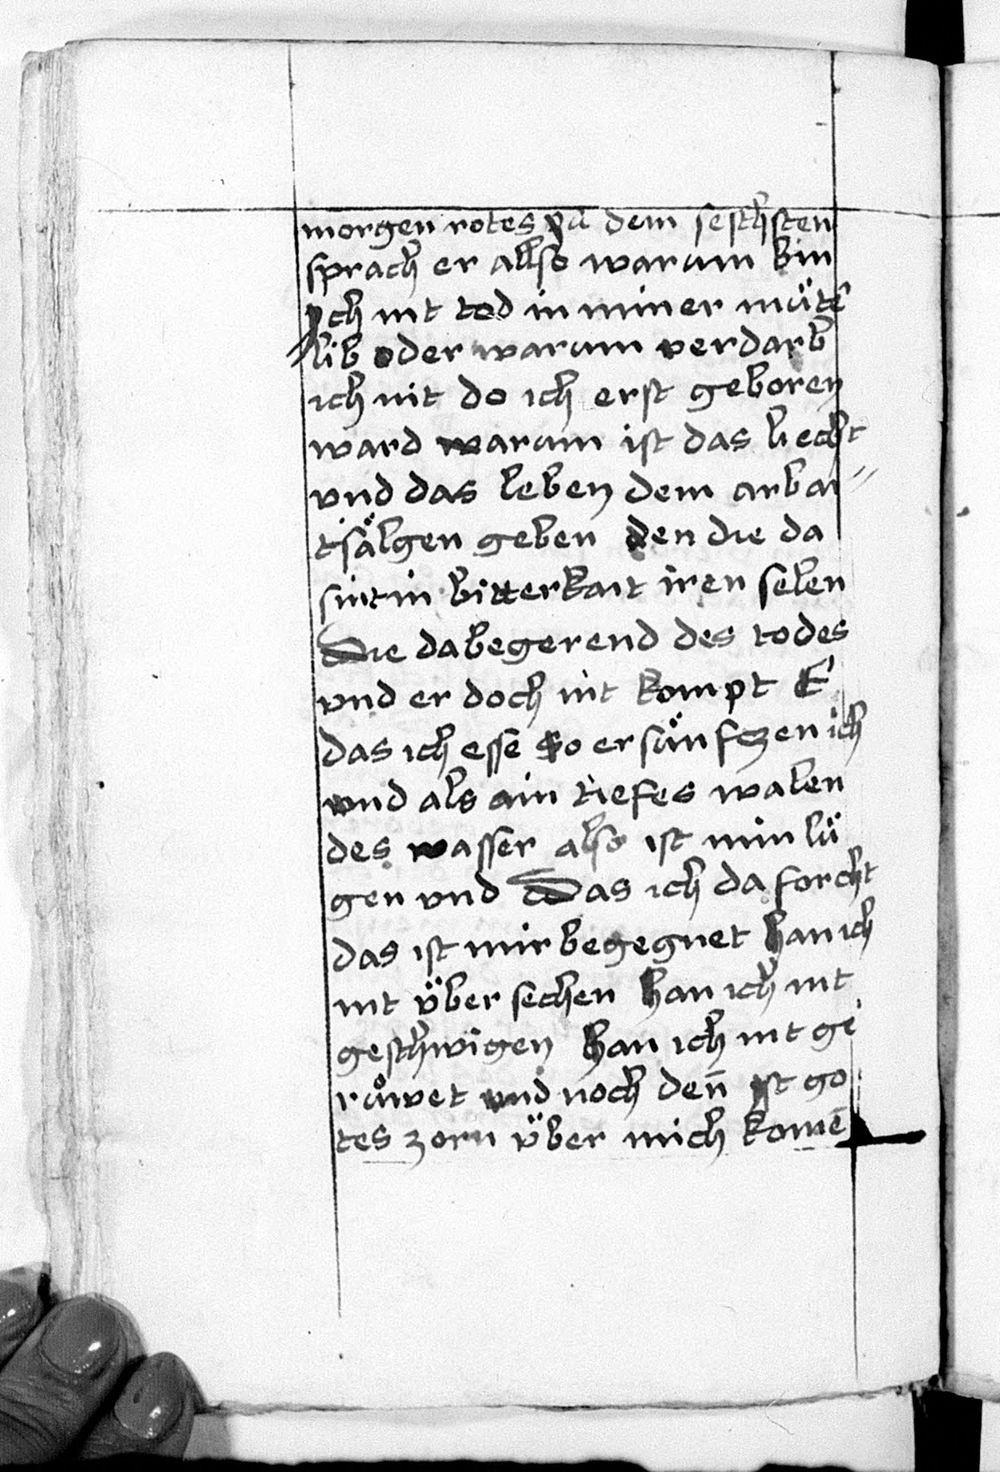 morgen rotes zů dem sesthsten
sprach er allso warum bin
ich nit tod in miner mütē
lib oder warum verdarb
ich nit do ich erst geboren
ward warum ist das liecht
vnd das leben dem arbai
tsälgen geben den die da
sint in bitterkait iren selen
Die da begerend des todes
vnd er doch nit kompt E
das ich esse so ersünfczen ich
vnd als ain tiefes walen
des wasser also ist min lü
gen vnd Das ich da forcht
das ist mir begegnet han ich
nit über sechen han ich nit
gesthwigen han ich nit ge
růwet vnd noch den̄ ist go
tes zorn über mich komē